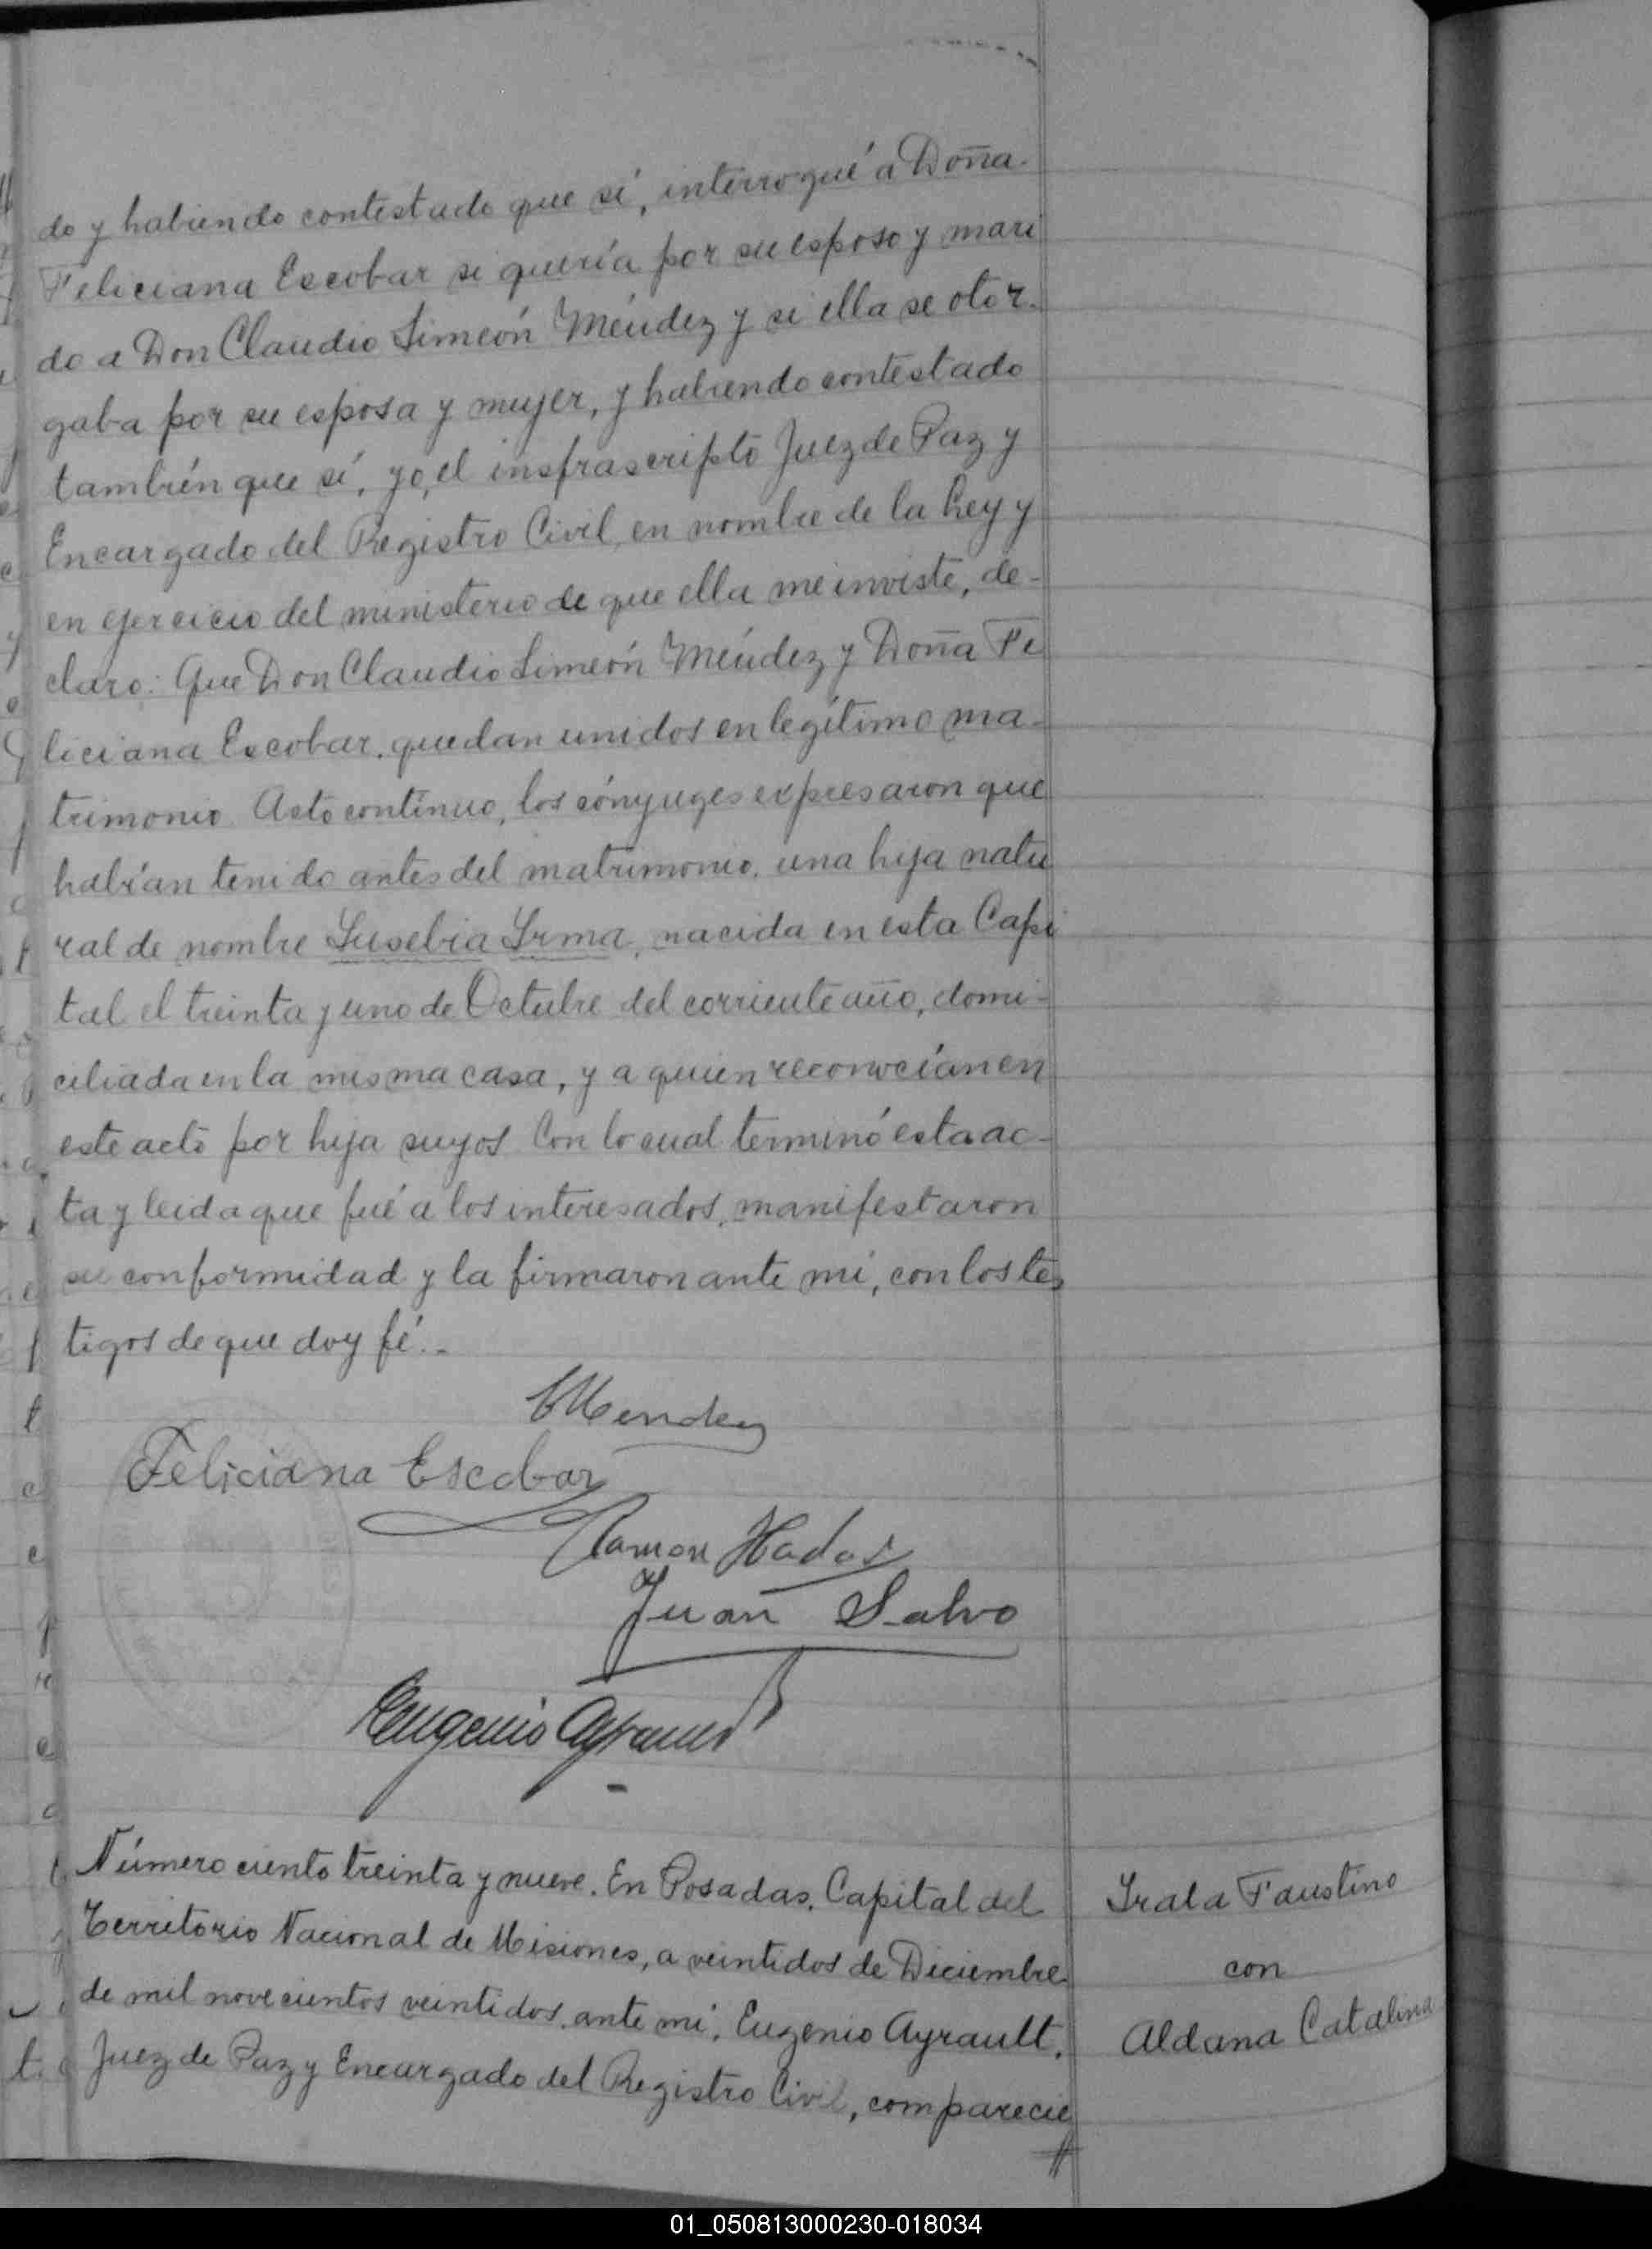 do y habiendo contestado que sí, interrogué a Doña
Feliciana Escobar si quería por su esposo y mari
do a Don Claudio Simeón Méndez y si ella se otor-
gaba por su esposa y mujer, y habiendo contestado
también que sí, yo, el insfrascripto Juez de Paz y
Encargado del Registro Civil, en nombre de la Ley y
en ejercicio del ministerio de que ella me inviste, de-
claro: Que Don Claudio Simeón Méndez y Doña Fe
liciana Escobar, quedan unidos en legítimo ma-
trimonio. Acto contínuo, los cónyuges expresaron que
habían tenido antes del matrimonio, una hija natu
ral de nombre Eusebia Irma, nacida en esta Capi
tal el treinta y uno de Octubre del corriente año, domi-
ciliada en la misma casa, y a quien reconocían en
este acto por hija suyos. Con lo cual terminó esta ac-
ta y leida que fué a los interesados, manifestaron
su conformidad y la firmaron ante mí, con los tes
tigos de que doy fé..-
CMendez
Feliciana Escobar
Ramon
Juan Salvo
Eugenio Ayrault
Número ciento treinta y nueve. En Posadas, Capital del
Territorio Nacional de Misiones, a veintidos de Diciembre
de mil novecientos veintidos, ante mí, Eugenio Ayrault,
Juez de Paz y Encargado del Registro Civil, comparecie
Irala Faustino
con
Aldana Catalina
01_050813000230-018034